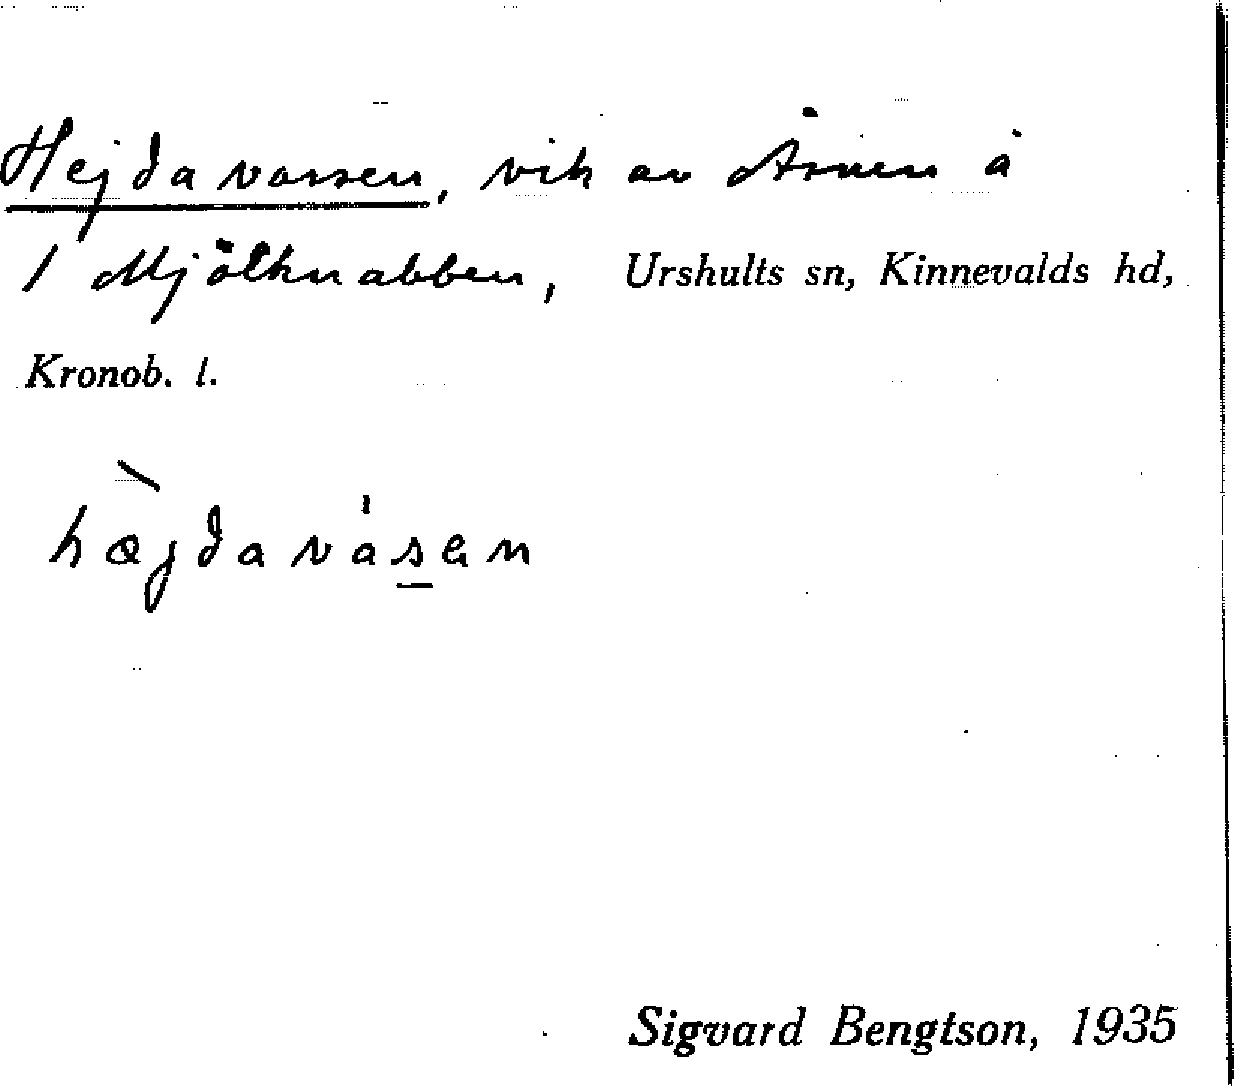 Hejdavassen, vik av Åsnen å
1 Mjölknabben, Urshults sn, Kinnevalds hd,
Kronob. l.
hæjdavásen
Sigvard Bengtson, 1935